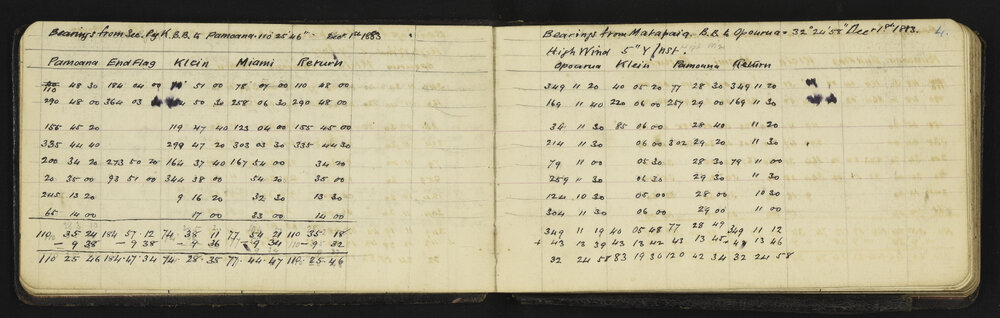 Bearings from Sec. Peg K. B.B. to Pamoana. 110° 25' 46" Decr 1st 1883
Pamoana End Flag Klein Miami Return
110 48 30 184 04 00 51 00 78 07 00 110 48 00
290 48 00 364 03 50 30 258 06 30 290 48 00
155 45 20 119 47 40 123 04 00 155 45 00
335 44 40 299 47 20 303 03 30 335 44 30
200 34 20 273 50 20 164 37 40 167 54 00 34 20
20 35 00 93 51 00 344 38 00 54 20 35 00
245 13 20 9 16 20 32 30 13 30
65 14 00 17 00 33 00 14 00
110 35 24 184 57 12 74 38 11 77 54 21 110 35 18
- 9 38 - 9 38 - 9 36 - 9 34 - 9 32
110 25 46 184.47.34 74. 28.35 77. 44.47 110.25.46
Bearings from Matapaia. B.B. to Opourua = 32° 24' 58" Decr 1st 1883. 4.
High Wind 5" Y/Inst.
Opourua Klein Pamoana Return
349 11 20 40 05 20 77 28 30 349 11 20
169 11 40 220 06 00 257 29 00 169 11 30
34 11 30 85 06 00 28 40 11 20
214 11 30 06 00 302 29 20 11 30
79 11 00 05 30 28 30 79 11 00
259 11 30 06 30 29 30 11 30
124 10 30 05 00 28 00 10 30
304 11 30 06 00 29 00 11 00
349 11 19 40 05 48 77 28 49 349 11 12
+ 43 13 39 43 13 42 43 13 45 43 13 46
32 24 58 83 19 30 120 42 34 32 24 58